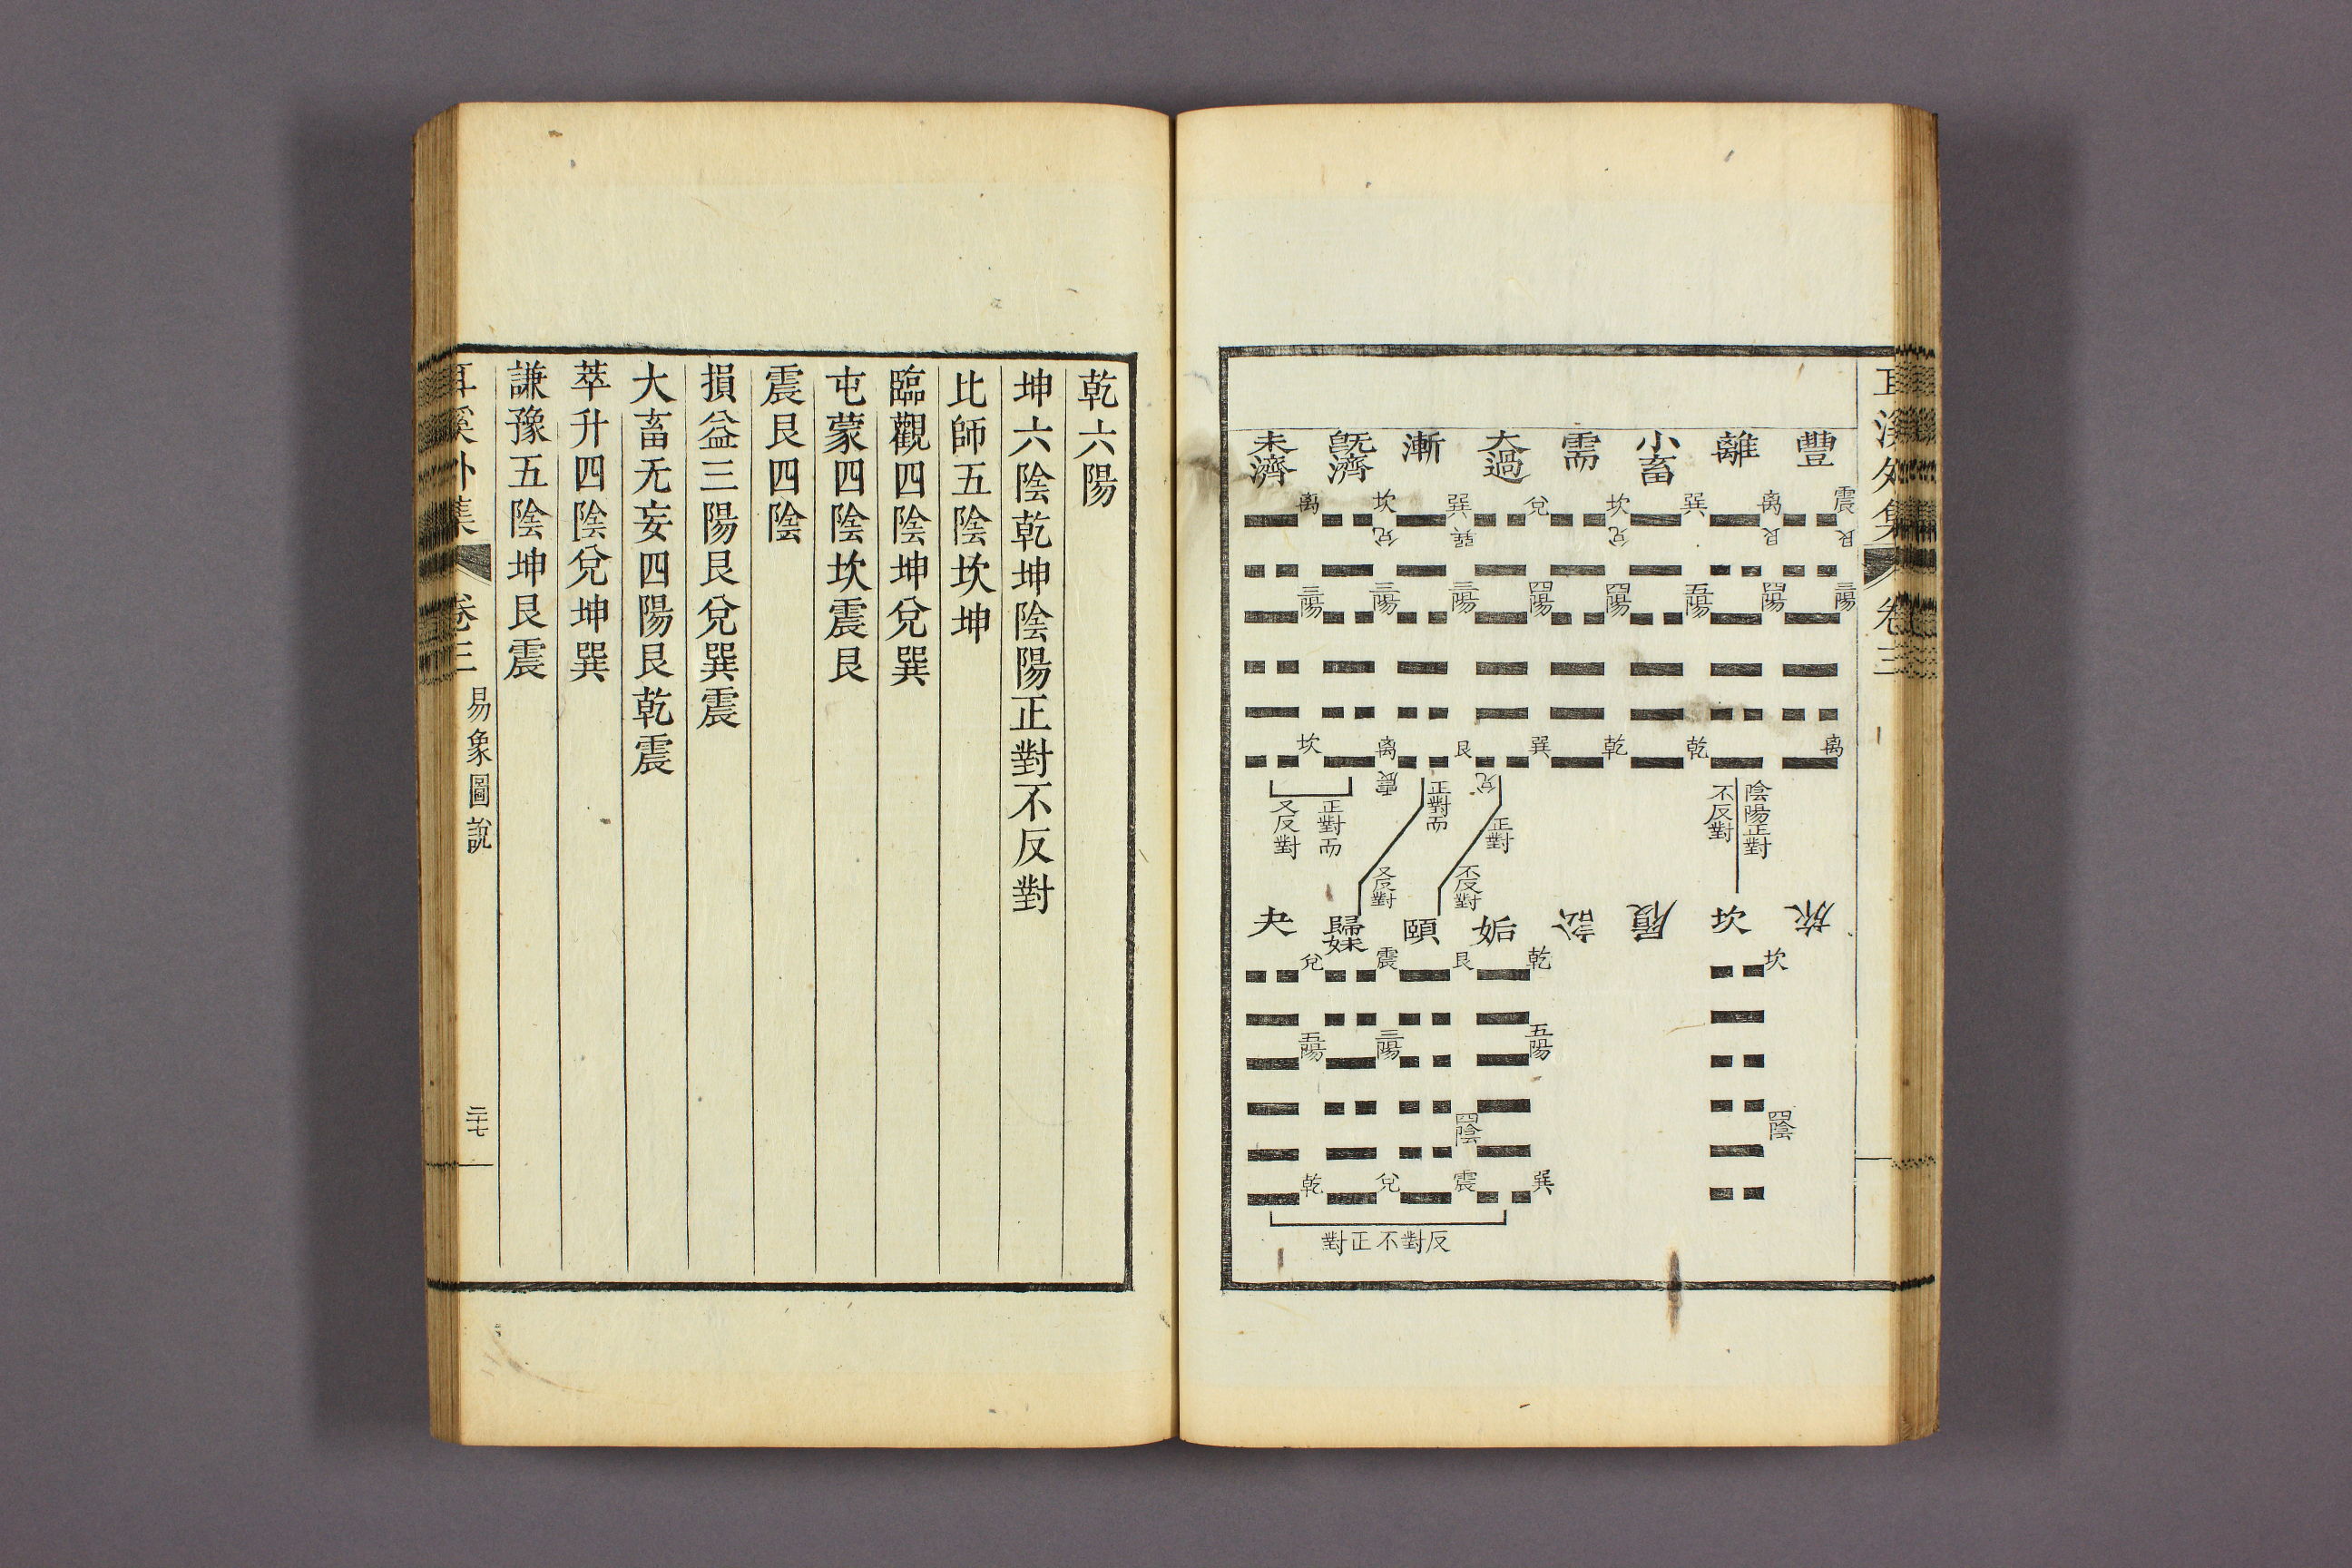 耳溪外集
卷三
豐 離 小畜 需 大過 漸 旣濟 未濟
震 离 巽 坎 兌 巽 坎 离
艮 艮 兌 巽 兌
三陽 四陽 五陽 四陽 四陽 三陽 三陽 三陽
离 乾 乾 巽 艮 离 坎
兌 震
陰陽正對
不反對
正對
不反對
正對而
又反對
正對而
又反對
旅 坎 履 訟 姤 頤 歸妹 夬
坎 乾 艮 震 兌
四陰 五陽 四陰 三陽 五陽
巽 震 兌 乾
反對不正對
乾六陽
坤六陰乾坤陰陽正對不反對
比師五陰坎坤
臨觀四陰坤兌巽
屯蒙四陰坎震艮
震艮四陰
損益三陽艮兌巽震
大畜无妄四陽艮乾震
萃升四陰兌坤巽
謙豫五陰坤艮震
耳溪外集
卷三
易象圖說
二十七